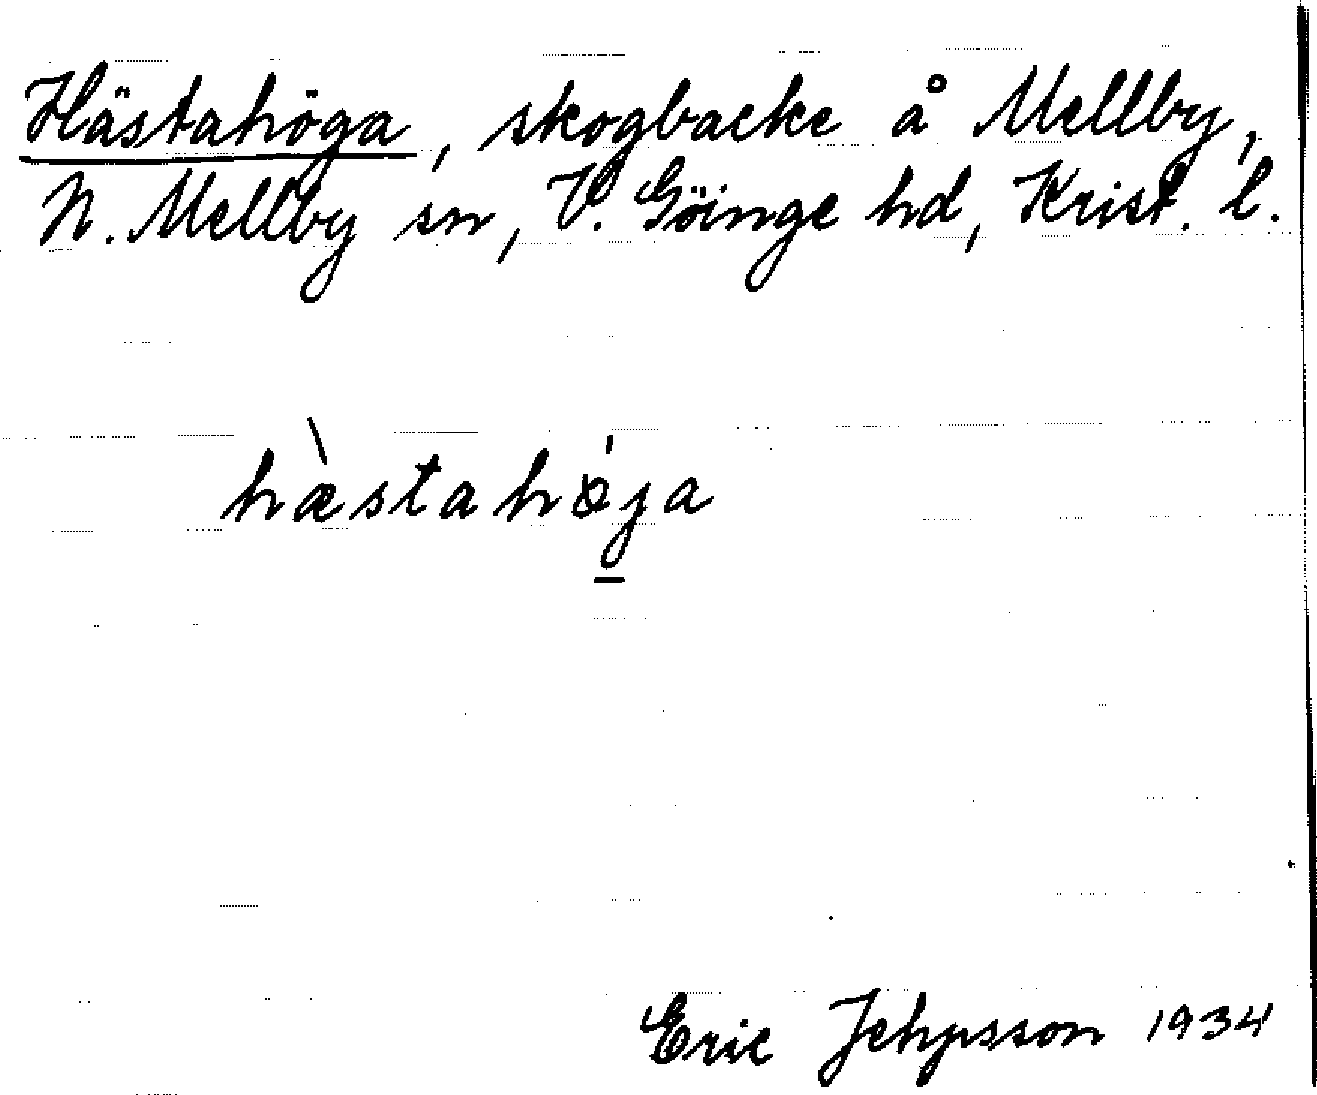 Hästahöga, skogbacke å Mellby,
N. Mellby sn, V. Göinge hd, Krist. l.
hæ̀stahǿja
Eric Jehpsson 1934